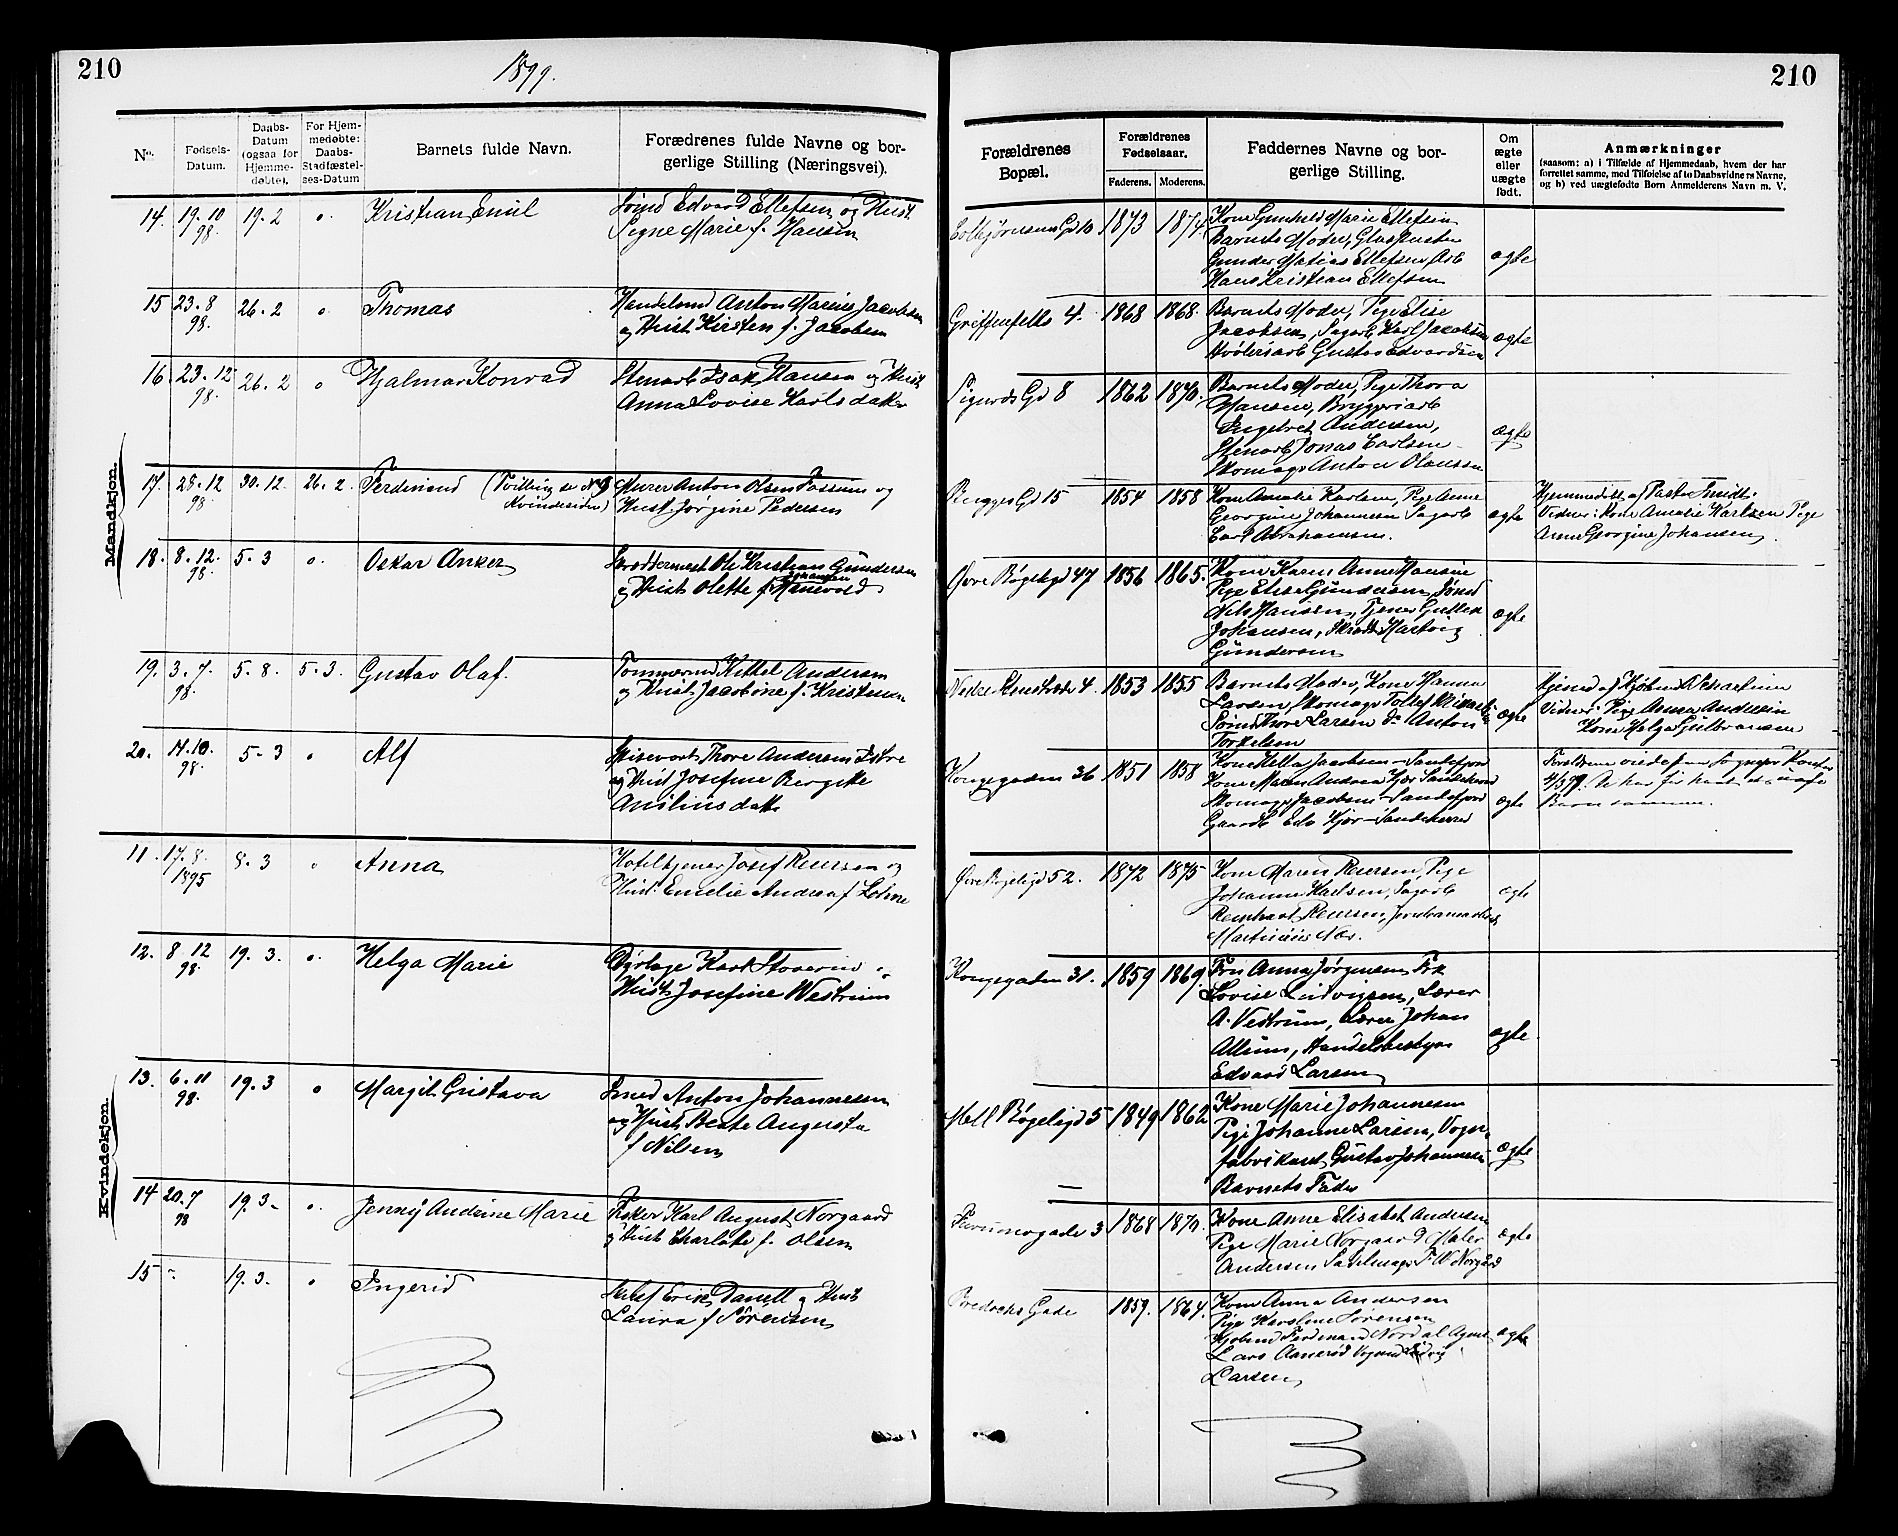 210
1899.
210
No.
Fødsels-
Datum.
Daabs-
Datum
(ogsaa for
Hjemme-
døbte).
For Hjem-
medøbte:
Daabs-
Stadfæstel-
ses-Datum
Barnets fulde Navn.
Forældrenes fulde Navne og bor-
gerlige Stilling (Næringsvei).
Forældrenes
Bopæl.
Forældrenes
Fødselsaar.
Faderens.
Moderens.
Faddernes Navne og bor-
gerlige Stilling.
Om
ægte
eller
uægte
født.
Anmærkninger
(saasom: a) i Tilfælde af Hjemmedaab, hvem der har
forrettet samme, med Tilføielse af to Daabsvidners Navne,
og b) ved uægtefødte Børn Anmelderens Navn m. V.
Mandkjøn.
14. 19.10 98. 19.2 " Kristian Emil
Edvard Ellefsen og Hust
Signe Marie f. Hansen
1873 1874.
Kone Gunhild Marie Ellefsen
Barnets Moder,
Gunder Matias Ellefsen Arb
Hans Kristian Ellefsen
ægte
15 23.8 98. 26.2 " Thomas
Anton Marius Jacobsen
og Hust Kirsten f. Jacobsen
Griffenfelts 4. 1868 1868.
Barnets Moder, Pige Elise
Jacobsen, Sagarb Karl Jacobsen
Gustav Edvardsen
ægte
16. 23.12 98. 26.2 " Hjalmar Konrad
Stenarb Isak Hansen og Hust
Anna Lovise Karlsdatter
Sigurds Gd 8 1862 1870.
Barnets Moder, Pige Thora
Hansen, Bryggeriarb
Engebret Andersen,
Stenarb Jonas Carlsen
Skomager Anton Olaussen
ægte
17. 28.12 98. 30.12. 26.2. Ferdinand (Tvilling se No 9
Kvindesiden)
Murer Anton Olsen Fossum og
Hust Jørgine Pedersen
Gd 15 1854 1858
Kone Amalie Karlsen, Pige Anne
Georgine Johannesen Sagarb
Carl Abrahamsen.
ægte
Hjemmedøbt af Pastor Smidt.
Vidner: Kone Amalie Karlsen Pige
Anne Georgine Johansen
18. 8.12. 98. 5.3 " Oskar Anker
Skræddermest Ole Kristian Gundersen
Johansen
og Hust Olette f. Hanevold
Øvre Bøgeligd 47 1856 1865.
Kone Karen Anne Hansine
Pige Elise Gundersen, Sømd
Nils Hansen, Tjener Gullik
Johansen, Hartvig
Gundersen
ægte
19. 3.7. 98. 5.8. 5.3. Gustav Olaf.
Tømmermd Kittel Andersen
og Hust Jacobine f. Kristensen
Nedre 4. 1853 1855
Barnets Moder, Kone Hanna
Larsen, Skomager Tollef
Sømd Thore Larsen do Anton
Torkelsen
ægte
Hjemd af
Vidner: Pige Anna Andersen
Kone Helga Gulbransen
20. 11.10. 98. 5.3 " Alf
Thore Andersen
og Hust Josefine Bergitte
datter
Kongegaden 36 1851 1858
Jacobsen Sandefjord
Kone Maren Andrea Kjær Sandeherred
Skomager Jacobsen Sandefjord
Kjær Sandeherred
ægte
Forældrene
Barn sammen.
Kvindekjøn.
11. 17.8. 1895 8.3 " Anna
Hoteltjener Josef Reiersen og
Hust Emelie Andrea f
Øvre Bøgeligd 52. 1872 1875
Kone Maren Reiersen, Pige
Johanne Karlsen, Sagarb
Reinhart Reiersen,
Martinius
ægte
12. 8 12 98. 19.3. " Helga Marie
Dyrlæge Karl
Hust Josefine Westrum
Kongegaden 31. 1859 1869.
Fru Anna Jørgensen Frk
Lovise Ludvigsen, Lærer
A. Vestrum, Lærer Johan
Allum, Handelsbestyr
Edvard Larsen
ægte
13. 6.11 98. 19.3 " Margit Gustava
Smed Anton Johannesen
og Hust Beate Augusta
f Nilsen
Mell Bøgeligd 5 1849 1862
Kone Marie Johannesen
Pige Johanne Larsen, Vogn-
fabrikant Gustav Johannesen
Barnets Fader
ægte
14 20.7 98 19.3. " Jenny Andrine Marie
Fisker Karl August Norgaard
og Hust Charlotte f. Olsen
3 1868 1870.
Kone Anne Elisabet Andersen
Pige Marie Norgaard Maler
Andersen Sadelmager Norgård
ægte
15 " 19.3. " Ingerid
Erik Danell og Hust
Laura f Sørensen
Bredochs Gade 1859. 1864.
Kone Anna Andersen
Pige Karoline Sørensen
Ferdinand Nordal Agent
Lars Aanerød
Larsen
ægte